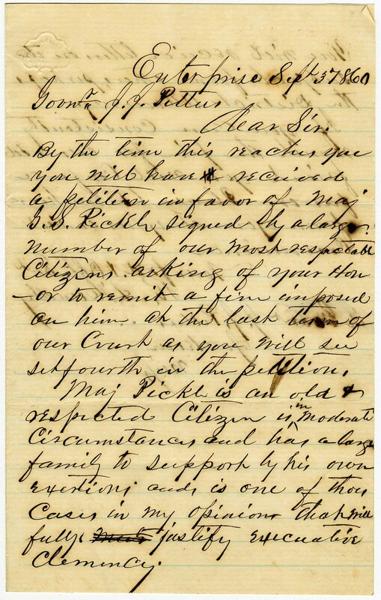 Enterprise Sept 5th 1860
Govnr J. J. Pettus
Dear Sir.
By the time this reaches you
you will have received
a petition in favor of Maj
Pickle signed by a large
number of our most respectable
Citizens asking of your Hon
-or to remit a fine imposed
on him at the last term of
our Court as you will see
setforth in the petition.
Maj Pickle is an old &
respected Citizen is in moderate
Circumstances and has a large
family to support by his own
exertions and is one of those
Cases in my opinion that will
fully justify executive
Clemency.